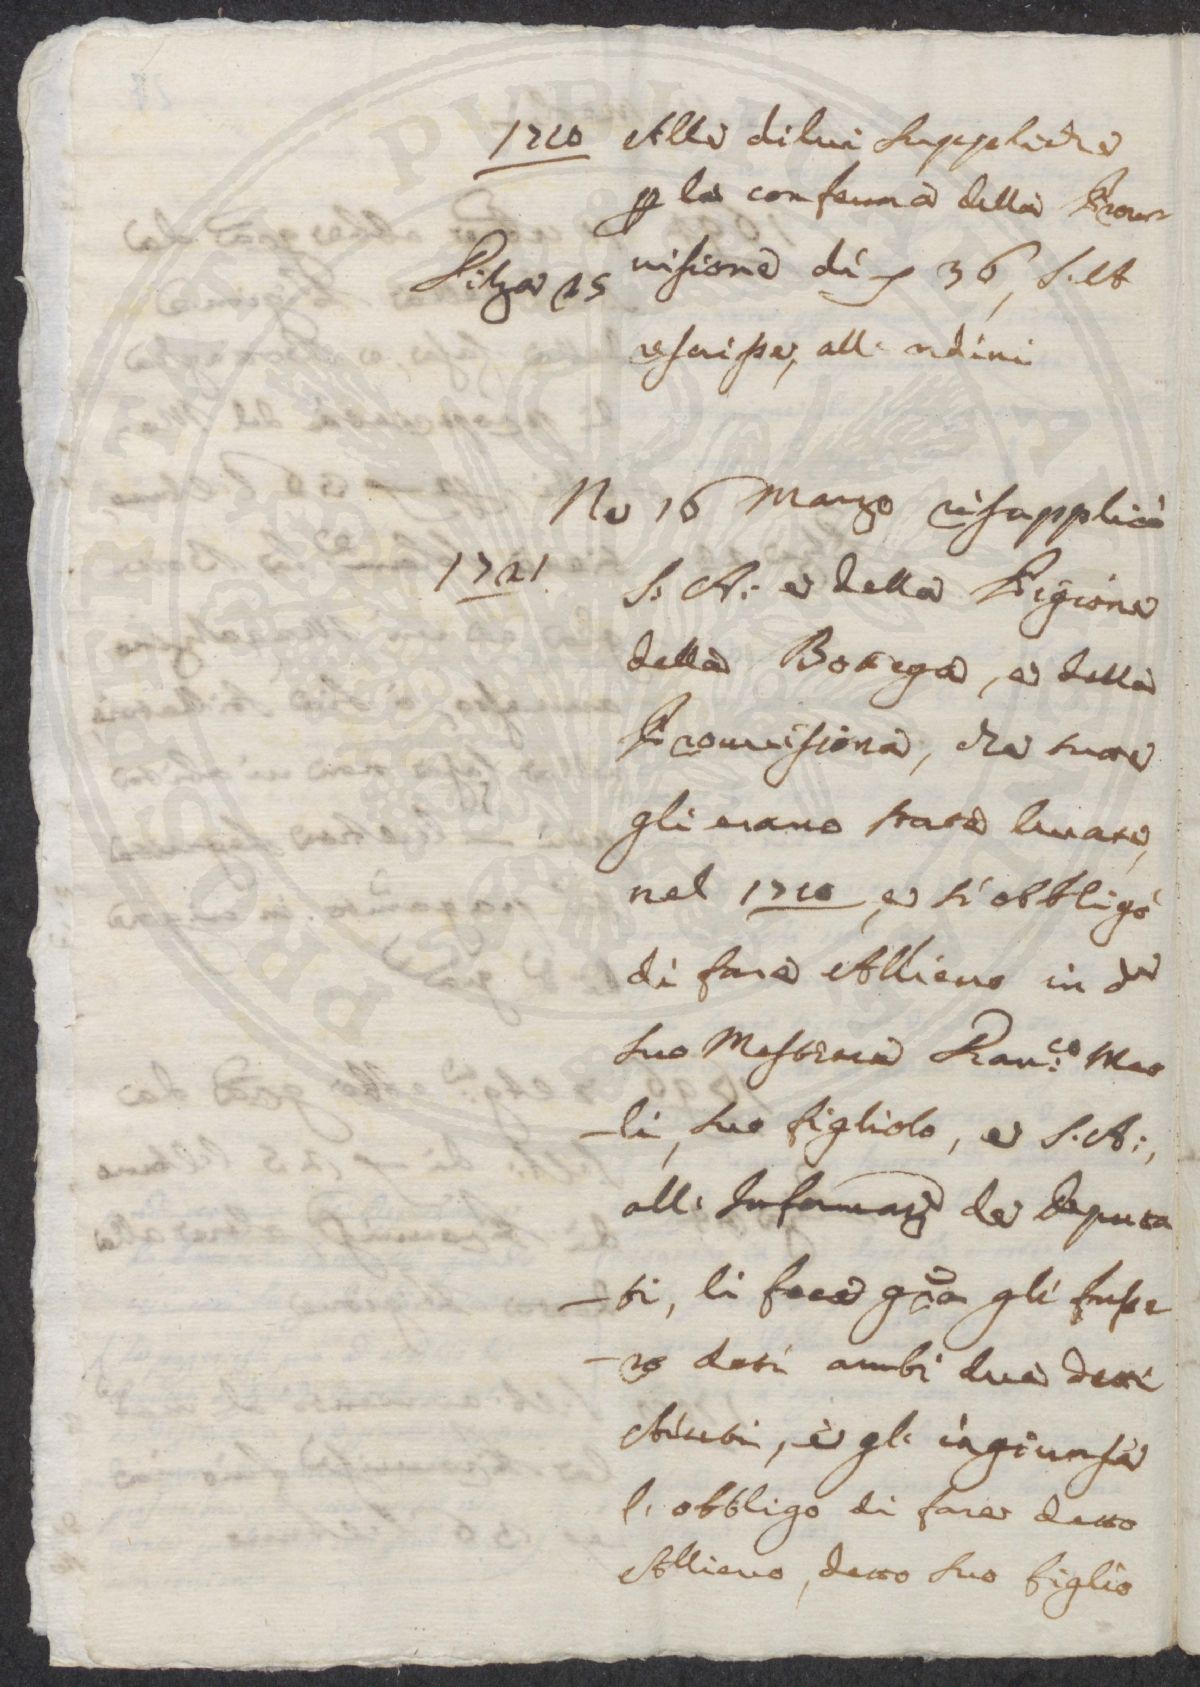 1720 Alla di lui supplica
p la conferma della Prou
Filza 25 uisione di 36, S. A
rescrisse, all'ordini
Ne 16 Marzo risupplicò
1721. S. A: e della Pigione
della Bottega, e della
Prouuisione, che tutte
gli erano state leuate,
nel 1720, e s'obbligò
di fare Allieuo in d.º
suo Mestiere Fran:co Mar
li, suo figliolo, e S. A:,
all' Informaz de Deputa
ti, li fece gra gli fusse
ro dati ambi due detti
Aiuti, e gl' ingiunse
l' obbligo di fare detto
Allieuo, detto suo figlio